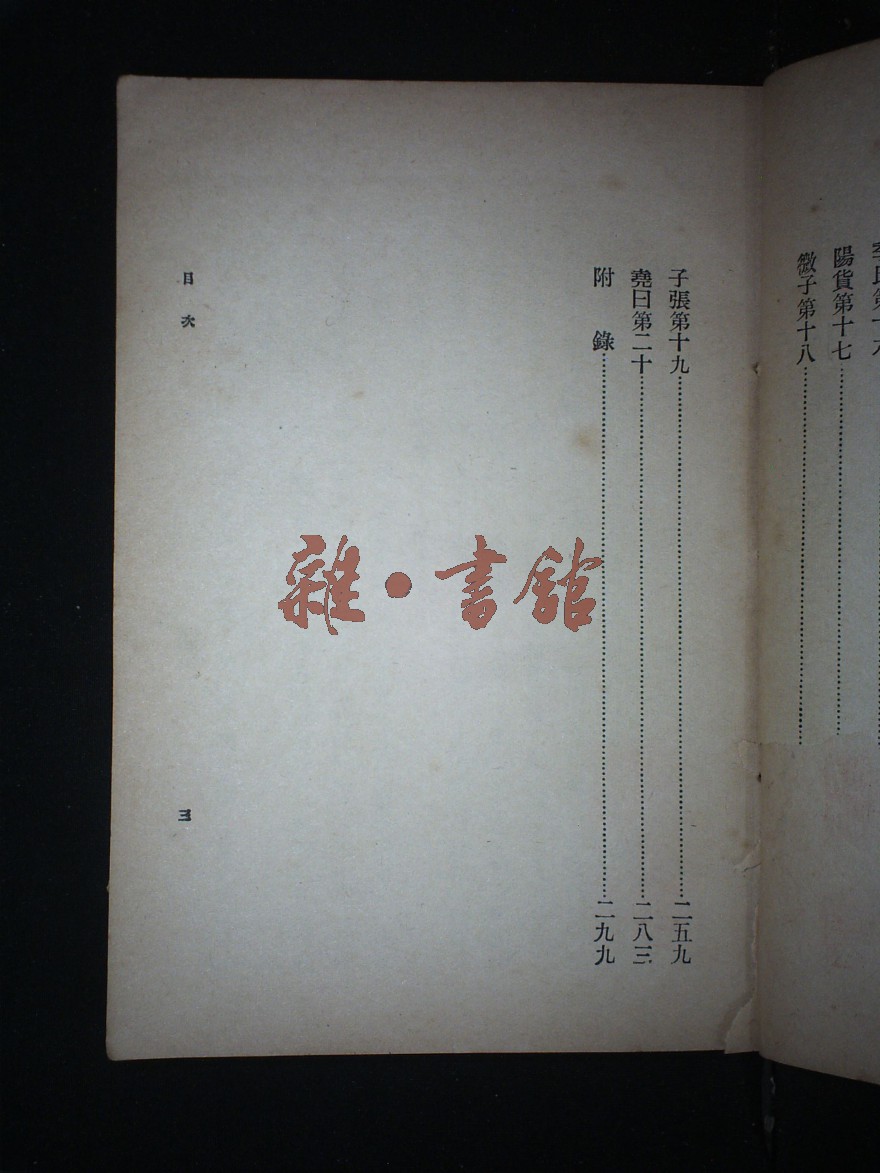 陽貨第十七
微子第十八
子張第十九 二五九
堯曰第二十 二八三
附錄 二九九
目次
三
雜·書館